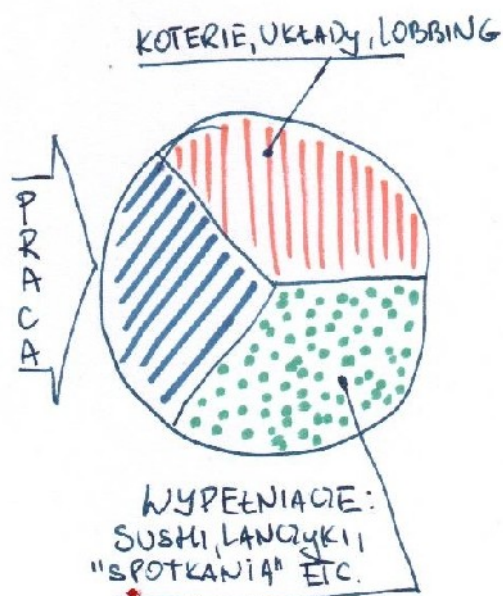 KOTERIE, UKŁADY, LOBBING
PRACA
WYPEŁNIACZE:
SUSHI, LANCZYKI,
"SPOTKANIA" ETC.